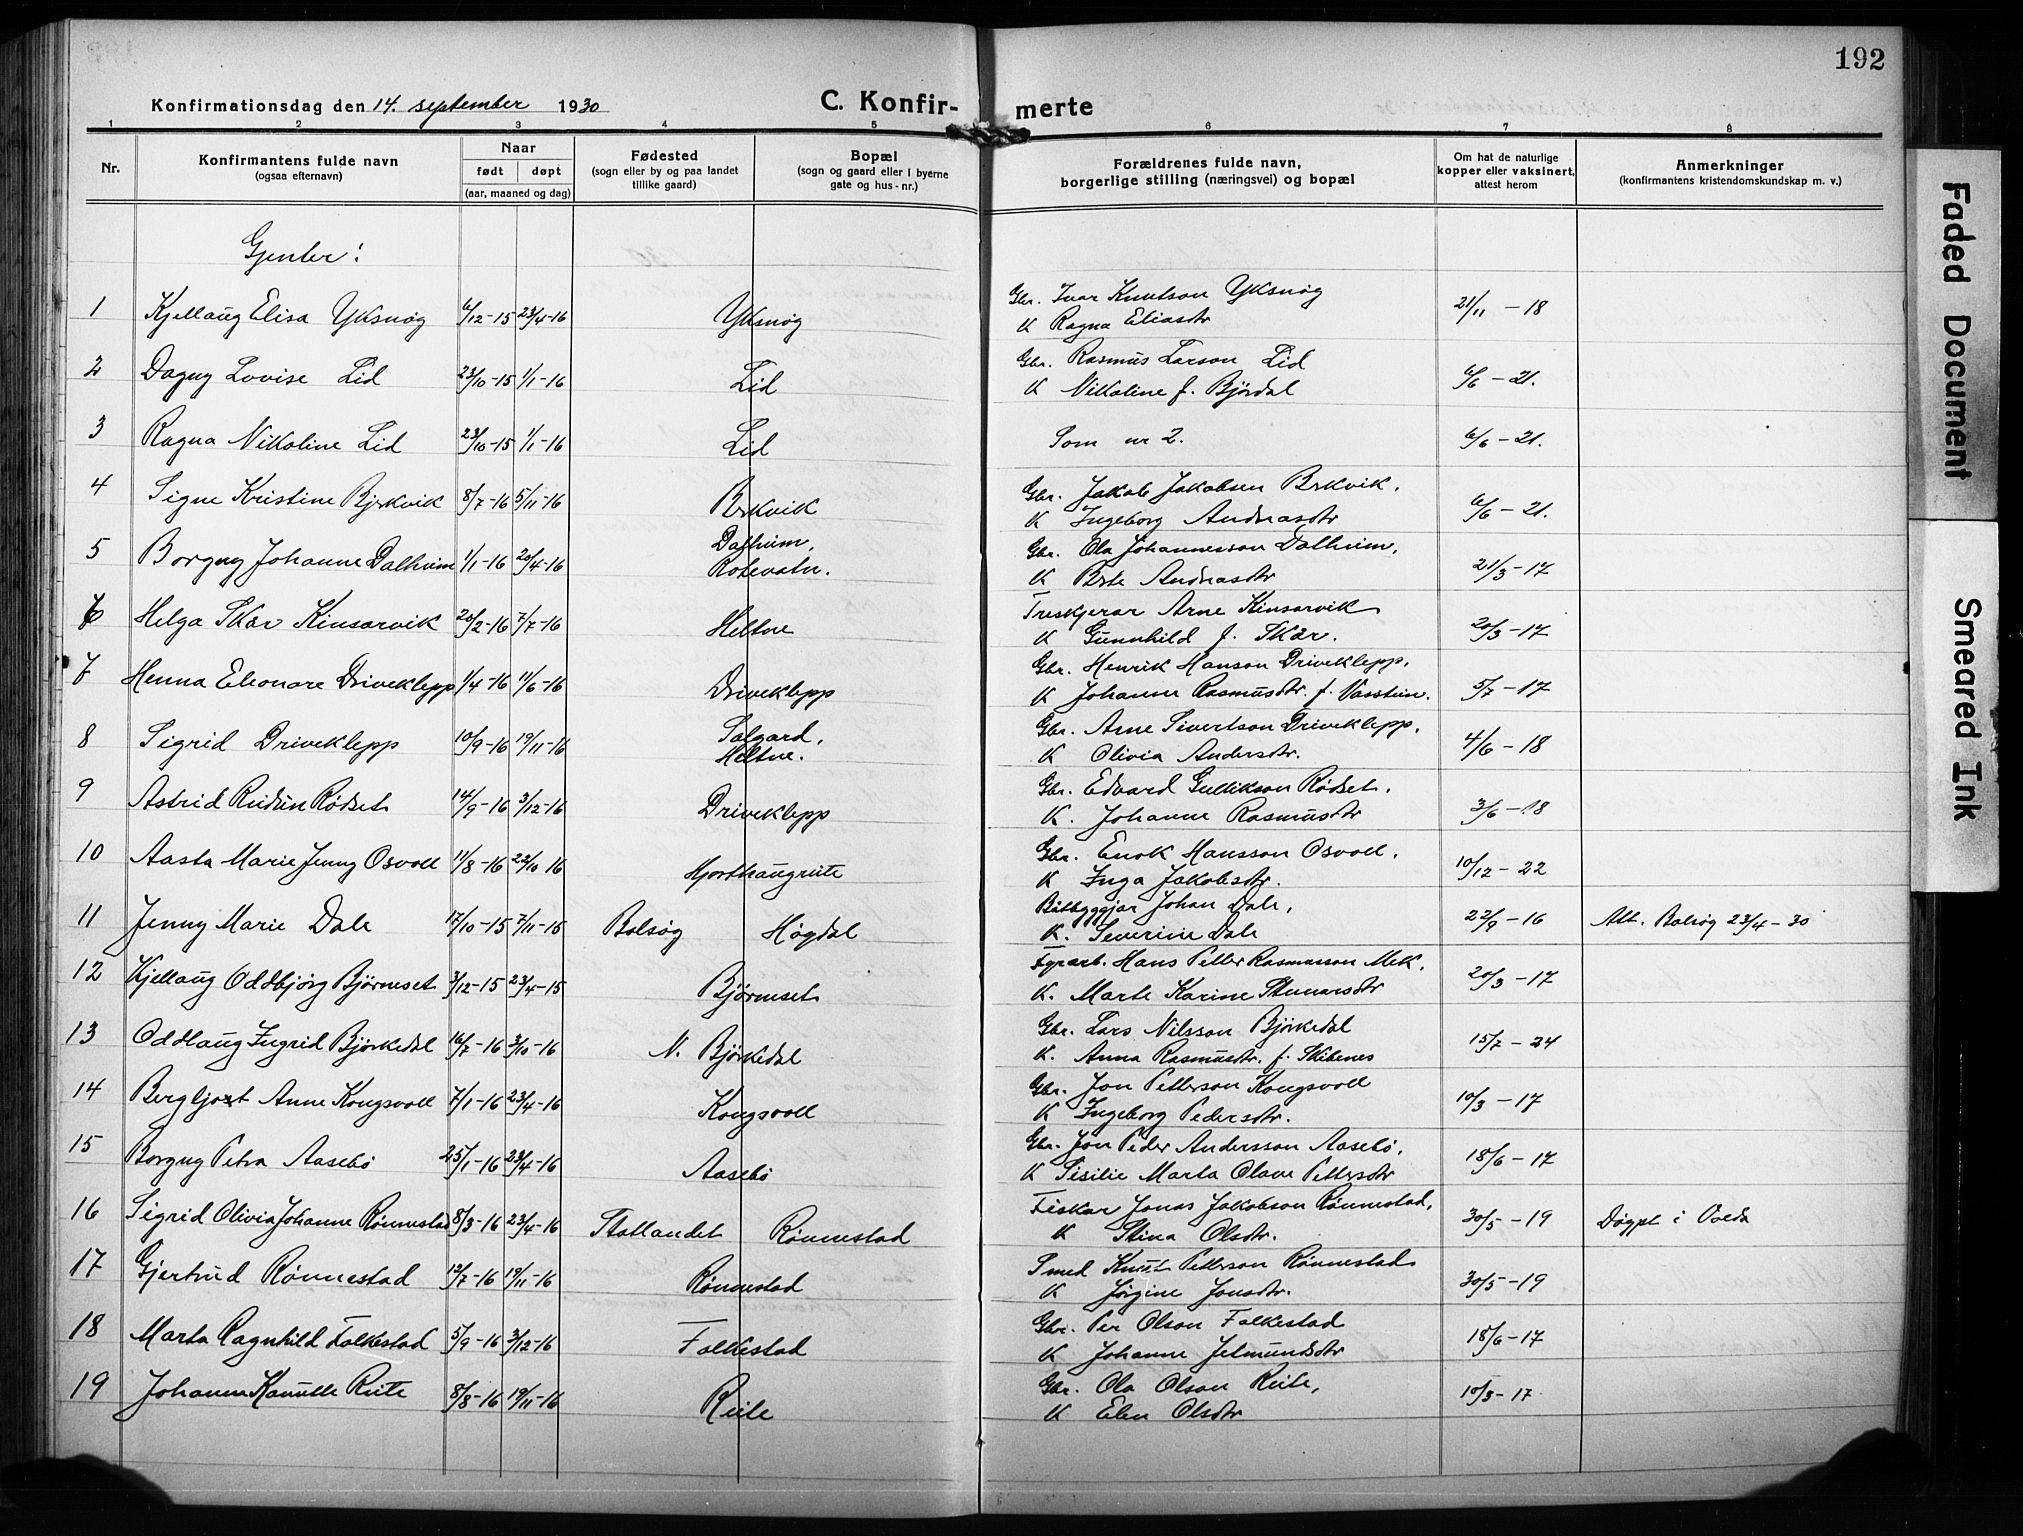 192
Konfirmationsdag den 14. september 1930
C. Konfir- merte
1 2 3 4 5 6 7 8
Nr.
Konfirmantens fulde navn
(ogsaa efternavn)
Naar
født døpt
(aar, maaned og dag)
Fødested
(sogn eller by og paa landet
tillike gaard)
Bopæl
(sogn og gaard eller i byerne
gate og hus-nr.)
Forældrenes fulde navn,
borgerlige stilling (næringsvei) og bopæl
Om hat de naturlige
kopper eller vaksinert,
attest herom
Anmerkninger
(konfirmantens kristendomskundskap m. v.)
Gjenter!
1 Kjellaug Elisa Yksnøg 6/12-15 23/4-16 Yksnøg Gbr. Ivar Knutson Yksnøg 21/11-18
K Ragna Eliasdtr
2 Dagny Lovise Lid 23/10-15 1/1-16 Lid Gbr. Rasmus Larson Lid 6/6-21.
K Nikoline f. Bjørdal
3 Ragna Nikoline Lid 23/10-15 1/1-16 Lid Som nr 2. 6/6-21.
4 Signe Kristine Bjrkvik 8/7-16 5/11-16 Brkvik Gbr. Jakob Jakobsen Brkvik. 6/6-21.
K Ingeborg Andreasdtr
5 Borgny Johanne Dalheim 1/1-16 20/4-16 Dalheim, Rotevatn. Gbr. Ola Johannesson Dalheim, 21/3-17
K Brte Andreasdtr
6 Helga Skar Kinsarvik 20/2-16 7/7-16 Heltne Treskjerar Arne Kinsarvik 20/3-17
K Gunnhild f. Skar.
7 Henna Eleonore Driveklepp 1/4-16 11/6-16 Driveklepp Gbr. Henrik Hanson Driveklepp. 5/7-17
K Johanne Rasmusdtr. f. Vasstun.
8 Sigrid Driveklepp 10/9-16 19/11-16 Solgard, Heltne. Gbr. Arne Sivertson Driveklepp. 4/6-18
K Olivia Andersdtr.
9 Astrid Reidun Rødset 14/9-16 3/12-16 Driveklepp Gbr. Edvard Gullikson Rødset. 3/6-18
K. Johanne Rasmusdtr
10 Aasta Marie Jenny Osvoll 11/8-16 22/10-16 Hjorthaugreite Gbr. Enok Hansson Osvoll. 10/12-22
K Inga Jakobsdtr.
11 Jenny Marie Dale 17/10-15 7/11-15 Bolsøg Høgdal Båtbyggjar Johan Dale, 22/9-16 Att. Bolsøg 23/4-30
K. Severine Dale
12 Kjellaug Oddbjørg Bjørneset 3/12-15 23/4-15 Bjørneset Fyrarb. Hans Petter Rasmusson Mek. 20/3-17
K. Marte Karine Steinarsdtr
13 Oddlaug Ingrid Bjørkedal 16/7-16 3/10-16 N. Bjørkedal Gbr. Lars Nilsson Bjørkedal 15/7-24
K. Anna Rasmusdtr. f. Skibenes
14 Bergljot Anne Kongsvoll 7/1-16 23/4-16 Kongsvoll Gbr. Jon Petterson Kongsvoll 10/3-17
K Ingeborg Pedersdtr.
15 Borgny Petra Aasebø 25/1-16 23/4-16 Aasebø Gbr. Jon Peder Andersson Aasebø. 18/6-17
K Sisilie Marta Olave Pettersdtr
16 Sigrid Olivia Johanne Rønnestad 8/3-16 23/4-16 Statlandet Rønnestad Fiskar Jonas Jakobson Rønnestad, 30/5-19 Døypt i Volda
K Stina Olsdtr.
17 Gjertrud Rønnestad 13/7-16 19/11-16 Rønnestad Smed Knut Petterson Rønnestad 30/5-19
K Jørgine Jonsdtr.
18 Marta Ragnhild Folkestad 5/9-16 3/12-16 Folkestad Gbr. Per Olson Folkestad 18/6-17
K Johanne Jetmundsdtr
19 Johanne Kamille Reite 8/8-16 19/11-16 Reite Gbr. Ola Olson Reite, 10/3-17
K Elen Olsdtr
Faded Document
Smeared Ink